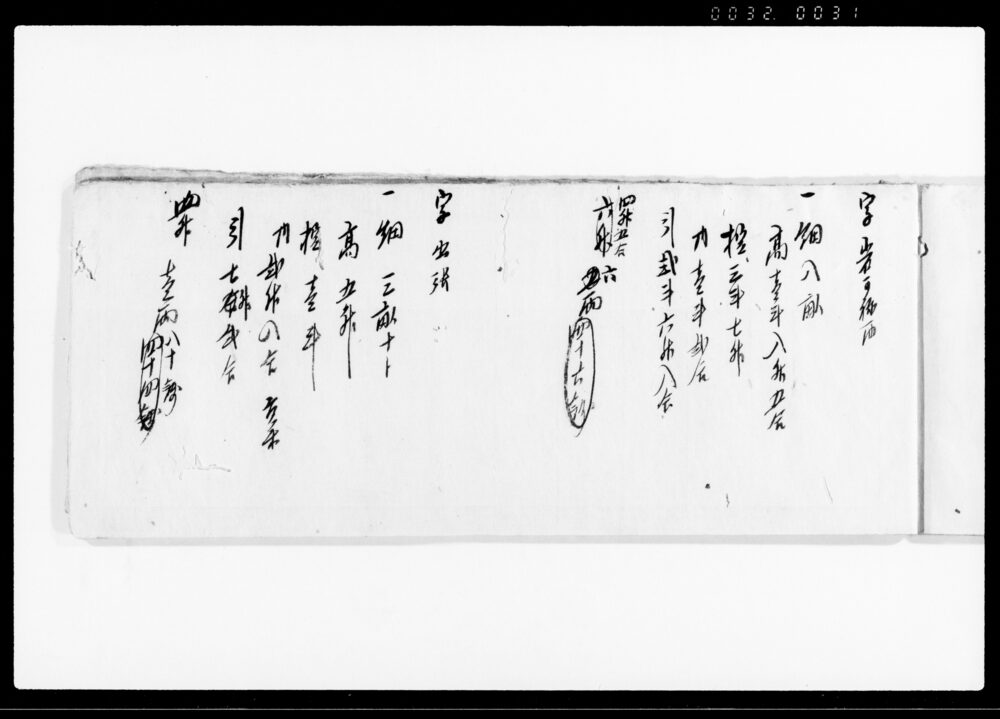 0032 0031
字岩
一 畑八畝
高壱斗八升五合
掟三斗七升
内壱斗弐合
引弐斗六升八合
四升五合
六升 六
四十六
字出張
一 畑三畝十卜
高五升
掟壱斗
内弐升八合
引七升弐合
四升
壱両 八十
四十四